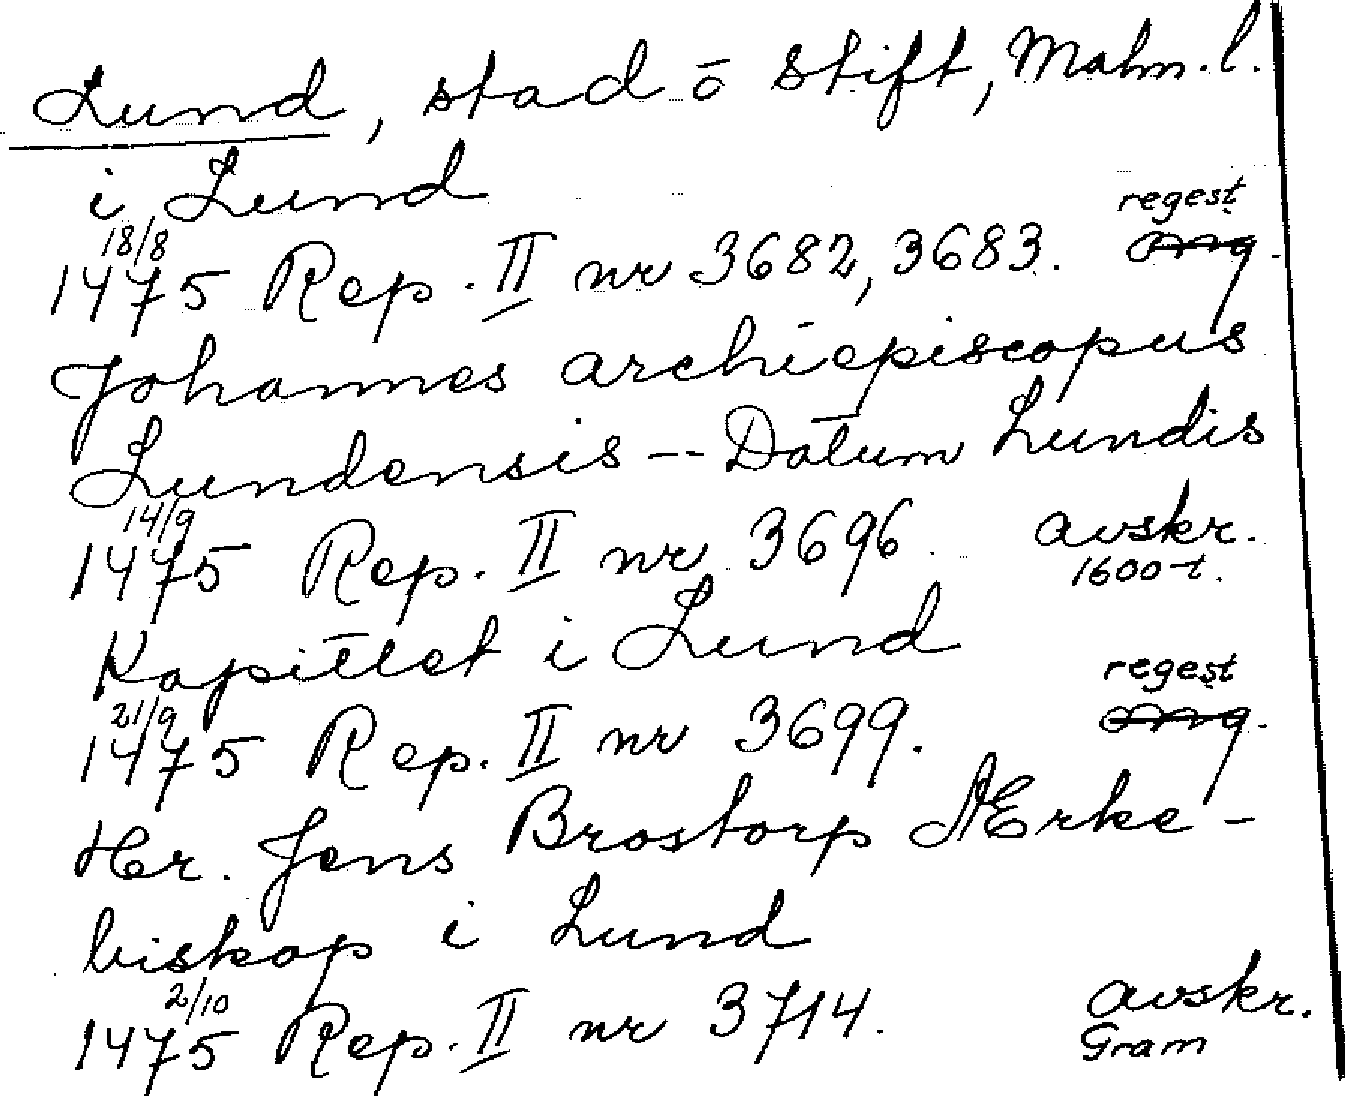 Lund, stad o stift, Malm. l.
i Lund
18/8 regest
1475 Rep. II nr 3682, 3683. omg.
Johannes archiepiscopus
Lundensis -- Datum Lundis
14/9
1475 Rep. II nr 3696. avskr.
1600-t.
Kapitlet i Lund
21/9 regest
1475 Rep. II nr 3699. omg.
Her. Jens Brostorp AErke-
biskop i Lund
2/10
1475 Rep. II nr 3714. avskr.
Gram